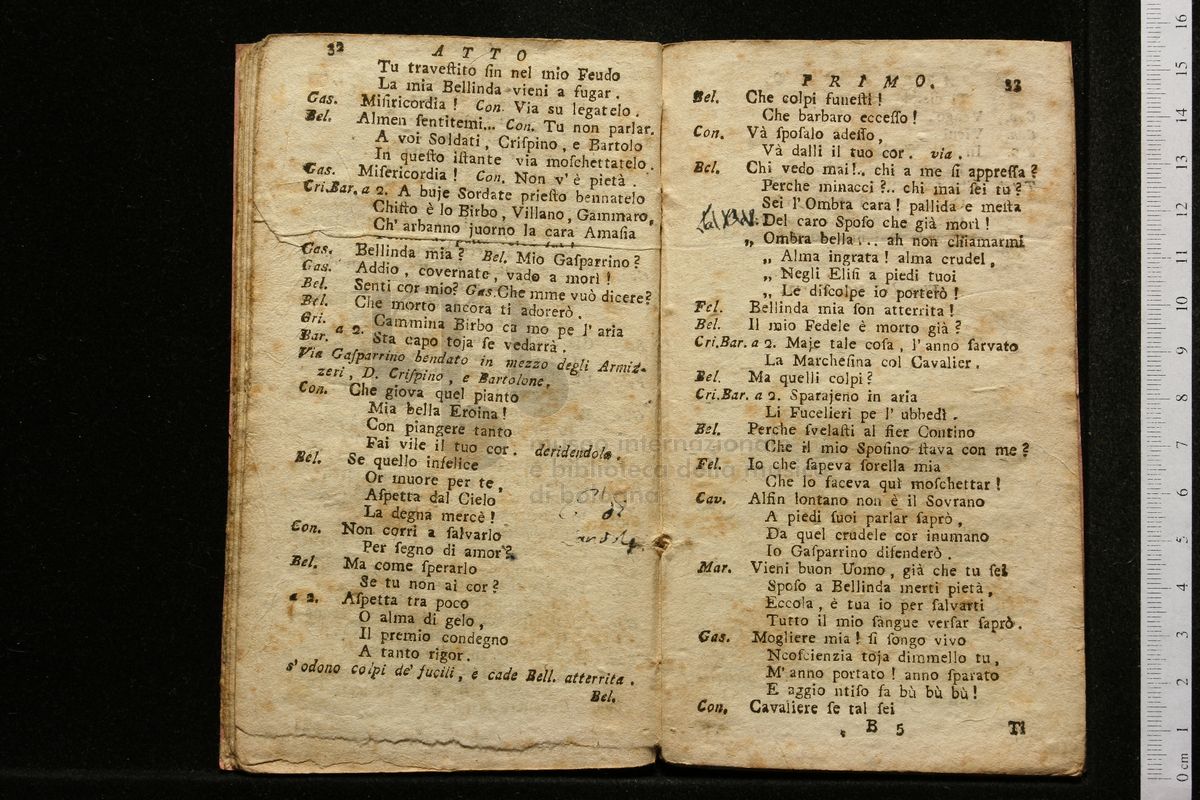 32
A T T O
Tu traveſtito ſin nel mio Feudo
La mia Bellinda vieni a fugar.
Gas. Miſiricordia ! Con. Via su legatelo.
Bel. Almen ſentitemi... Con. Tu non parlar.
A voi Soldati, Criſpino, e Bartolo
In queſto iſtante via moſchettatelo.
Gas. Miſericordia ! Con. Non v' è pietà.
Cri.Bar. a 2. A buje Sordate prieſto bennatelo
Chiſto è lo Birbo, Villano, Gammaro,
Ch' arbanno juorno la cara Amaſia
Gas. Bellinda mia ? Bel. Mio Gaſparrino ?
Gas. Addio, covernate, vado a morì !
Bel. Senti cor mio? Gas. Che mme vuò dicere?
Bel. Che morto ancora ti adorerò.
Gri. Cammina Birbo ca mo pe l' aria
Bar. a 2. Sta capo toja ſe vedarrà.
Via Gaſparrino bendato in mezzo degli Armiz-
zeri, D. Criſpino, e Bartolone.
Con. Che giova quel pianto
Mia bella Eroina !
Con piangere tanto
Fai vile il tuo cor. deridendola.
Bel. Se quello infelice
Or muore per te,
Aſpetta dal Cielo
La degna mercè !
Con. Non corri a ſalvarlo
Per ſegno di amor?
Bel. Ma come ſperarlo
Se tu non ai cor ?
a 2. Aſpetta tra poco
O alma di gelo,
Il premio condegno
A tanto rigor.
s' odono colpi de' fucili, e cade Bell. atterrita.
Bel.
P R I M O.
33
Bel. Che colpi funeſti !
Che barbaro ecceſſo !
Con. Và ſpoſalo adeſſo,
Và dalli il tuo cor. via.
Bel. Chi vedo mai !.. chi a me ſi appreſſa ?
Perche minacci ?.. chi mai ſei tu ?
Sei l' Ombra cara ! pallida e meſta
Del caro Spoſo che già morì !
„ Ombra bella ... ah non chiamarmi
„ Alma ingrata ! alma crudel,
„ Negli Eliſi a piedi tuoi
„ Le diſcolpe io porterò !
Fel. Bellinda mia ſon atterrita !
Bel. Il mio Fedele è morto già ?
Cri.Bar. a 2. Maje tale coſa, l' anno ſarvato
La Marcheſina col Cavalier.
Bel. Ma quelli colpi ?
Cri.Bar. a 2. Sparajeno in aria
Li Fucelieri pe l' ubbedì.
Bel. Perche ſvelaſti al fier Contino
Che il mio Spoſino ſtava con me ?
Fel. Io che ſapeva ſorella mia
Che lo faceva quì moſchettar !
Cav. Alfin lontano non è il Sovrano
A piedi ſuoi parlar ſaprò,
Da quel crudele cor inumano
Io Gaſparrino difenderò.
Mar. Vieni buon Uomo, già che tu ſei
Spoſo a Bellinda merti pietà,
Eccola, è tua io per ſalvarti
Tutto il mio ſangue verſar ſaprò.
Gas. Mogliere mia ! ſi ſongo vivo
Ncoſcienzia toja dimmello tu,
M' anno portato ! anno ſparato
E aggio ntiſo fa bù bù bù !
Con. Cavaliere ſe tal ſei
B 5
Ti
museo internazionale
e biblioteca della musica
di bologna